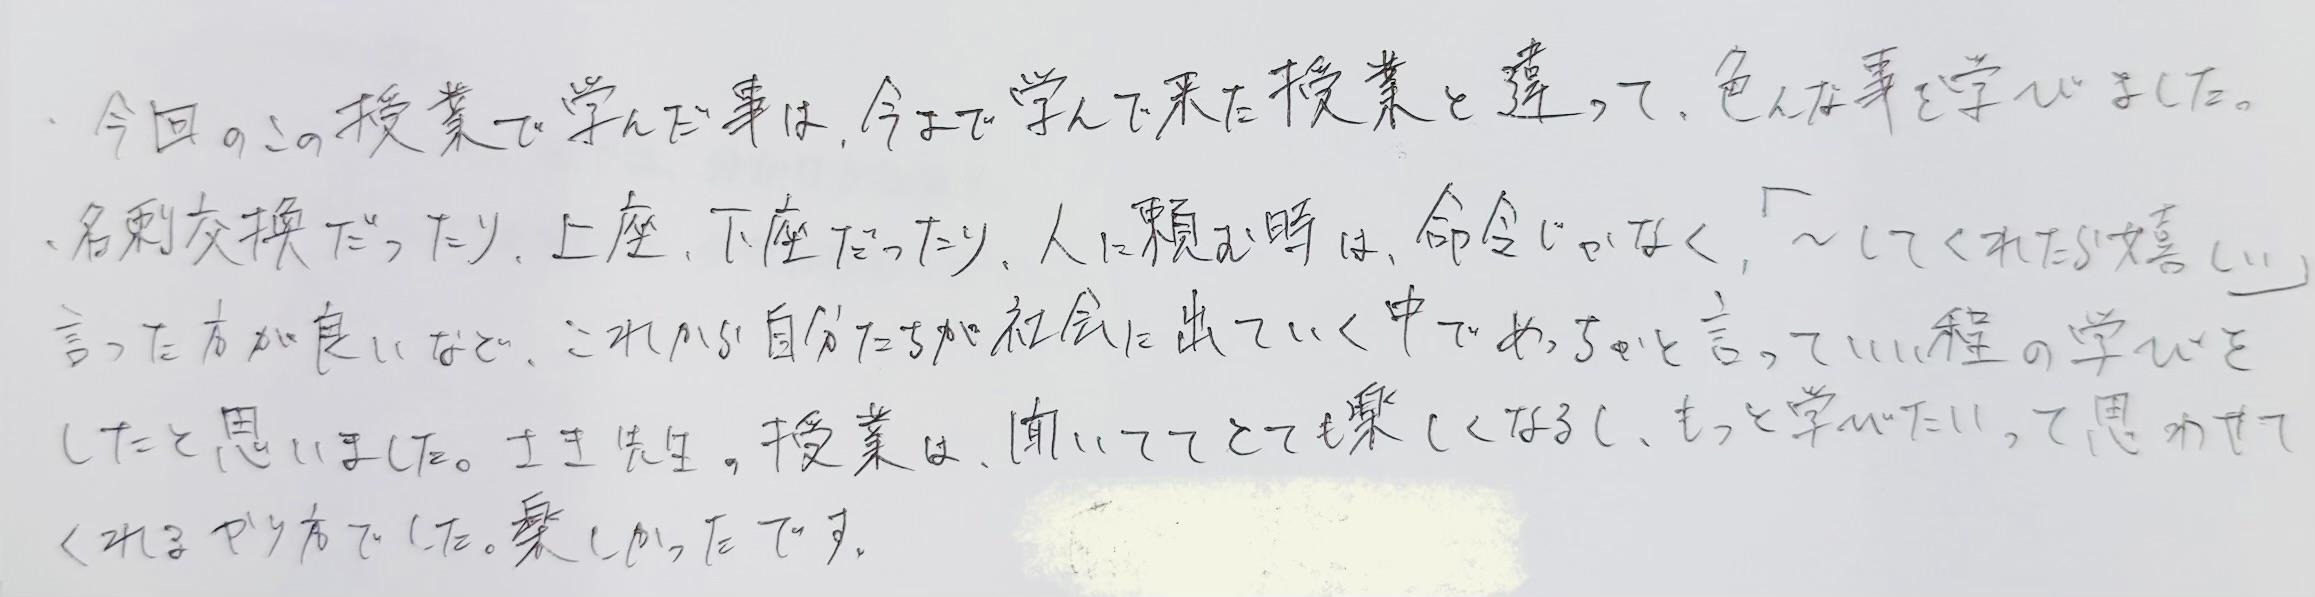 ・今回のこの授業で学んだ事は、今まで学んで来た授業と違って、色んな事を学びました。
、名刺交換だったり、上座、下座だったり、人に頼む時は、命令じゃなく、「～してくれたら嬉しい」
言った方が良いなど、これから自分たちが社会に出ていく中でめっちゃと言っていい程の学びを
したと思いました。さき先生の授業は、聞いててとても楽しくなるし、もっと学びたいって思わせて
くれるやり方でした。楽しかったです。